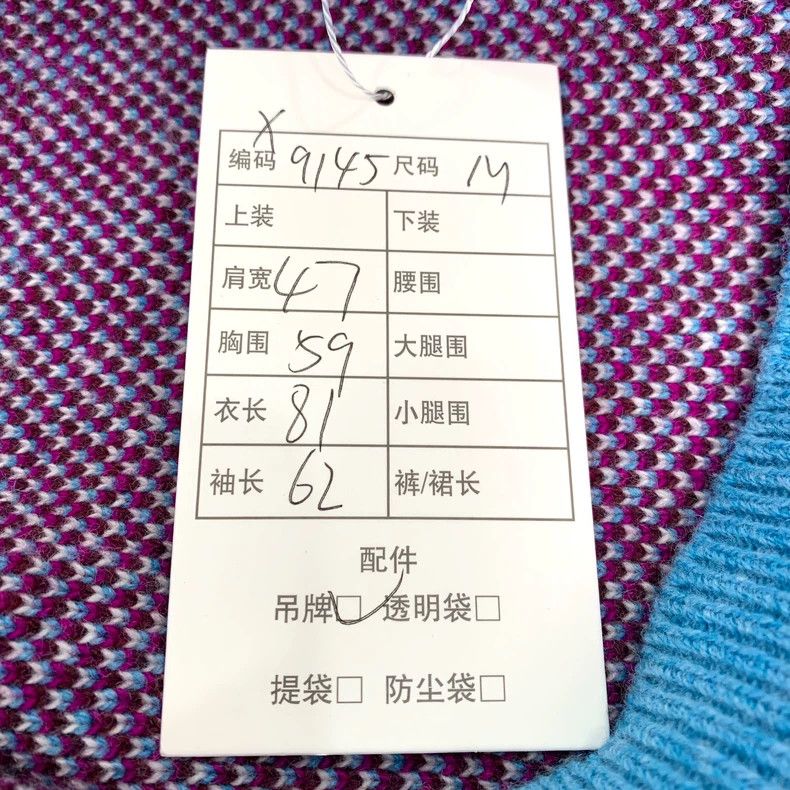 X
编码 9145 尺码 M
上装 下装
肩宽 47 腰围
胸围 59 大腿围
衣长 81 小腿围
袖长 62 裤/裙长
配件
吊牌☑ 透明袋□
提袋□ 防尘袋□